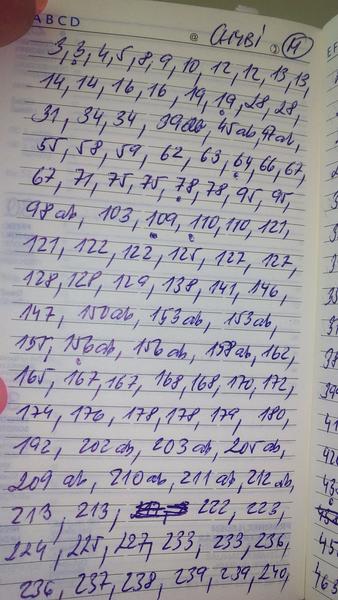 ABCD
CAMBI M
3, 3, 4, 5, 8, 9, 10, 12, 12, 13, 13,
14, 14, 16, 16, 19, 19, 28, 28,
31, 34, 34, 39ab, 45ab, 47ab,
55, 58, 59, 62, 63, 64, 66, 67,
67, 71, 75, 75, 78, 78, 95, 95,
98 ab, 103, 109, 110, 110, 121,
121, 122, 122, 125, 127, 127,
128, 128, 129, 138, 141, 146,
147, 150ab, 153ab, 153ab,
155, 156ab, 156 ab, 158ab, 162,
165, 167, 167, 168, 168, 170, 172,
174, 176, 178, 178, 179, 180,
192, 202 ab, 203 ab, 205ab,
209 ab, 210ab, 211 ab, 212 ab,
213, 213, 222, 223,
224, 225, 227, 233, 233, 236,
236, 237, 238, 239, 239, 240,